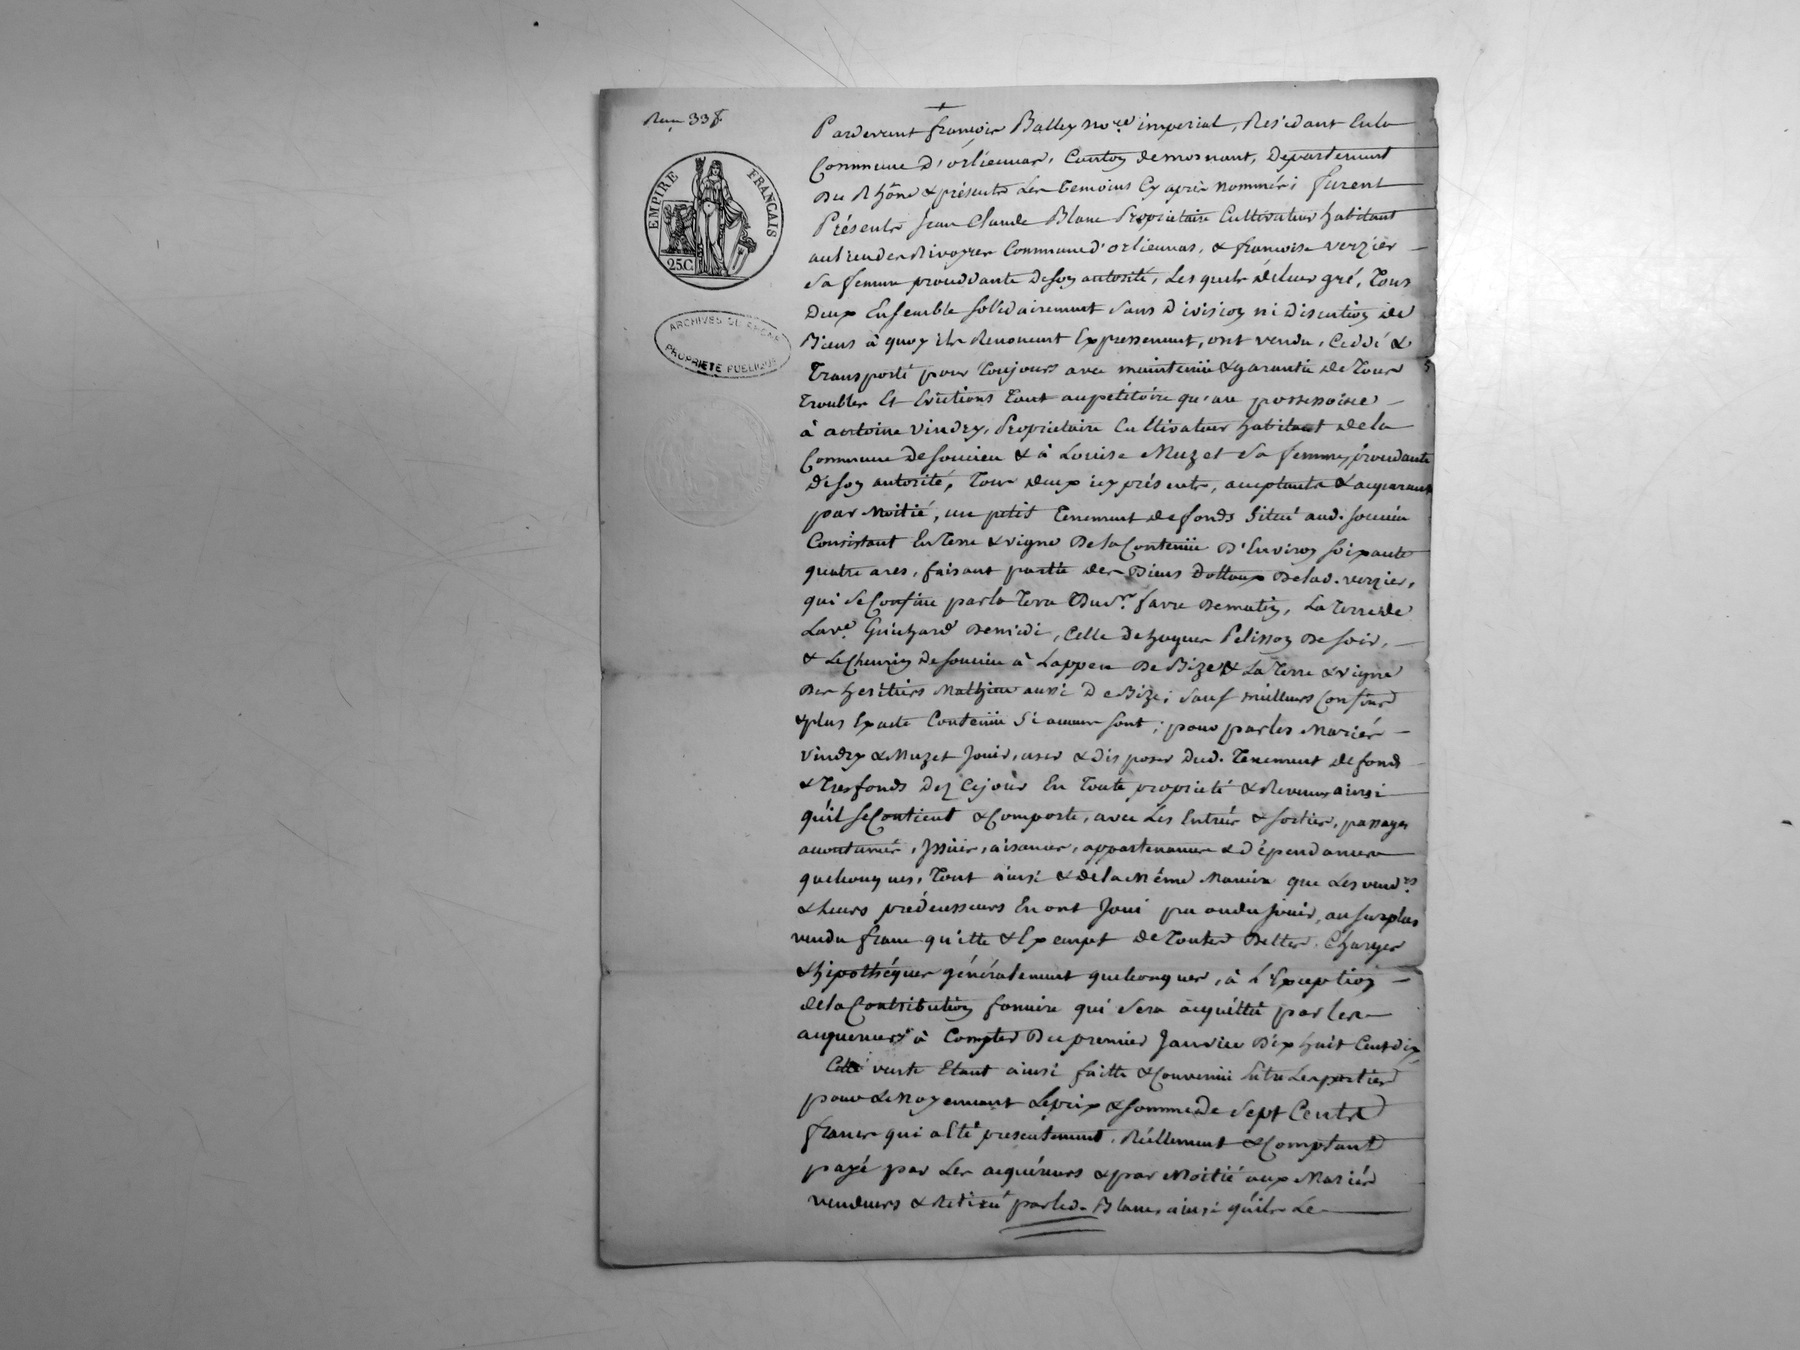 EMPIRE FRANÇAIS
25.C.
ARCHIVES DU RHÔNE
PROPRIÉTÉ PUBLIQUE
Pardevant françois Balley no.re imperial, Résidant En la
Commune D'orliennas, Canton de mornant, Departement
Du Rhône & présents Les temoins Cy après nommés; furent
Présents Jean Claude Blanc Propriétaire Cultivateur habitant
au lieu des Rivoyres Commune d'orliennas, & françoise verzier
Sa femme procédante De son autorité, Les quels de leur gré, Tous
deux Ensemble solidairement Sans Division ni Discution de
Biens à quoy ils Renoncent Expressement, ont vendu, Cédé &
Transporté pour Toujours avec maintenüe & garantie de Tous
Troubles Et Evictions Tant au pétitoire qu'au possessoire
à antoine vindry, Propriétaire Cultivateur habitant de la
Commune de soucieu & à Louise Muzet Sa femme procédante
De son autorité, Tous deux icy présents, acceptants & acquerants
par Moitié, un petit Tenement de fonds Situé aud. soucieu
Consistant En Terre & vigne De la Contenüe D'Environ soixante
quatre ares, faisant partie des Biens Dottaux De lad. verzier,
qui se Confine par la Terre Du S.r favre De matin, La Terre de
La v.e Guichard De midi, Celle de hugues Pelisson De soir,
& Le Chemin de soucieu à Lappeu De Bize & La Terre & vigne
Des heritiers Mathieu aussi De Bize; sauf meilleurs Confins
& plus Exacte Contenüe Si aucuns sont; pour par les Mariés
vindry & Muzet Jouir, user & disposer Dud. Tenement de fonds
& Tresfonds Dez Cejour En Toute propriété & Revenus ainsi
qu'il se Contient & Comporte, avec Les Entrées & sorties, passages
accoutumés, Issües, aisances, appartenances & dépendances
quelconques, Tout ainsi & de la Même Maniere que Les vend.rs
& Leurs prédecesseurs En ont Joui pu ou du Jouir, au surplus
vendu franc quitte & Exempt de Toutes Dettes, Charges
& hipothéques généralement quelconques, à L'Exception
de la Contribution fonciere qui Sera acquittée par Les
acquereurs à Compter Du premier Janvier Dix huit Cent dix
Cette vente Etant ainsi faitte & Convenüe Entre Les parties
pour & Moyennant Le prix & somme de Sept Cents
francs qui a Eté presentement, Réellement & Comptant
payé par Les acquéreurs & par Moitié aux Mariés
vendeurs & Retiré par led. Blanc, ainsi qu'ils Le